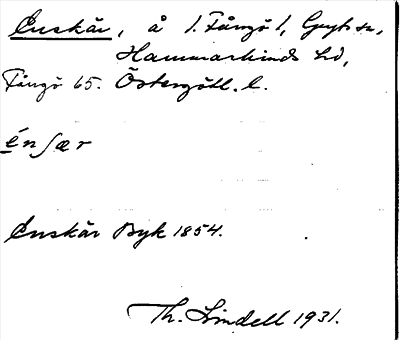 Enskär, å 1. Fångö 1, Gryts sn,
Hammarkinds hd,
Fångö 65. Östergötl. l.
énʃær
Enskär Byk 1854.
Th. Lindell 1931.